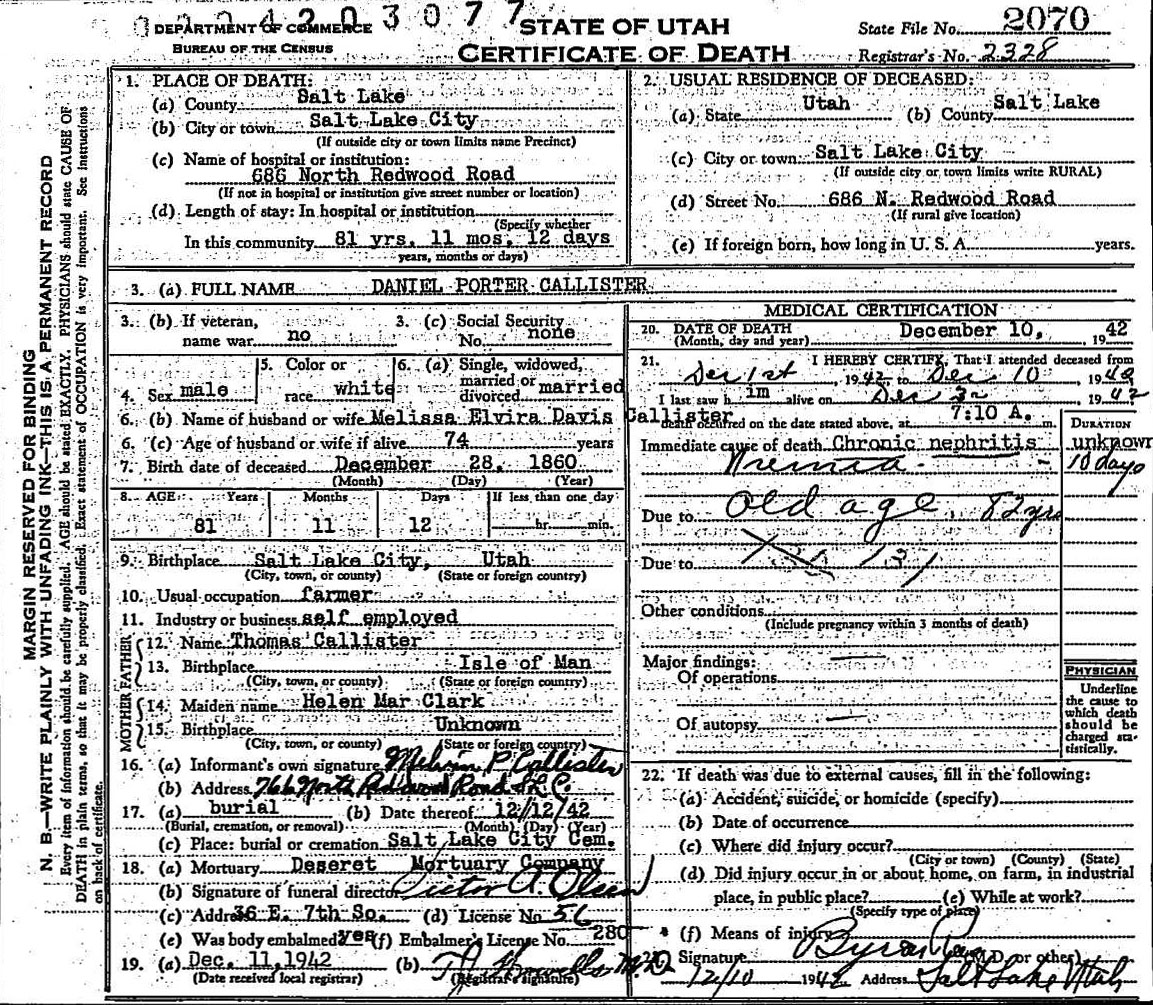 4 2 0 3 0 7 7
DEPARTMENT OF COMMERCE
BUREAU OF THE CENSUS
STATE OF UTAH
CERTIFICATE OF DEATH
State File No. 2070
Registrar's No. 2328
MARGIN RESERVED FOR BINDING
N. B.—WRITE PLAINLY WITH UNFADING INK—THIS IS A PERMANENT RECORD
Every item of information should be carefully supplied. AGE should be stated EXACTLY. PHYSICIANS should state CAUSE OF
DEATH in plain terms, so that it may be properly classified. Exact statement of OCCUPATION is very important. See instructions
on back of certificate.
1. PLACE OF DEATH:
(a) County Salt Lake
(b) City or town Salt Lake City
(If outside city or town limits name Precinct)
(c) Name of hospital or institution:
686 North Redwood Road
(If not in hospital or institution give street number or location)
(d) Length of stay: In hospital or institution
(Specify whether
In this community 81 yrs. 11 mos. 12 days
years, months or days)
2. USUAL RESIDENCE OF DECEASED:
(a) State Utah (b) County Salt Lake
(c) City or town Salt Lake City
(If outside city or town limits write RURAL)
(d) Street No. 686 N. Redwood Road
(If rural give location)
(e) If foreign born, how long in U. S. A. years.
3. (a) FULL NAME DANIEL PORTER CALLISTER
3. (b) If veteran, name war no
3. (c) Social Security No. none
4. Sex male
5. Color or race white
6. (a) Single, widowed, married or divorced married
6. (b) Name of husband or wife Melissa Elvira Davis Callister
6. (c) Age of husband or wife if alive 74 years
7. Birth date of deceased December 28, 1860
(Month) (Day) (Year)
8. AGE: Years Months Days If less than one day
81 11 12 hr. min.
9. Birthplace Salt Lake City, Utah
(City, town, or county) (State or foreign country)
10. Usual occupation farmer
11. Industry or business self employed
FATHER
12. Name Thomas Callister
13. Birthplace Isle of Man
(City, town, or county) (State or foreign country)
MOTHER
14. Maiden name Helen Mar Clark
15. Birthplace Unknown
(City, town, or county) (State or foreign country)
16. (a) Informant's own signature Melvin P. Callister
(b) Address 766 North Redwood Road S.L.C.
17. (a) burial (b) Date thereof 12/12/42
(Burial, cremation, or removal) (Month) (Day) (Year)
(c) Place: burial or cremation Salt Lake City Cem.
18. (a) Mortuary Deseret Mortuary Company
(b) Signature of funeral director Victor A. Olsen
(c) Address 36 E. 7th So. (d) License No. 56
(e) Was body embalmed? yes (f) Embalmer's License No. 280
19. (a) Dec. 11, 1942 (b) M.D.
(Date received local registrar) (Registrar's signature)
MEDICAL CERTIFICATION
20. DATE OF DEATH December 10, 1942
(Month, day and year)
21. I HEREBY CERTIFY, That I attended deceased from
Dec 1st, 1942 to Dec 10, 1942
I last saw him alive on Dec 3, 1942
death occurred on the date stated above, at 7:10 A. m.
DURATION
Immediate cause of death Chronic nephritis unknown
Uremia - 10 days
Due to Old age 82 yrs
Due to 131
Other conditions
(Include pregnancy within 3 months of death)
Major findings:
Of operations —
Of autopsy —
PHYSICIAN
Underline
the cause to
which death
should be
charged sta-
tistically.
22. If death was due to external causes, fill in the following:
(a) Accident, suicide, or homicide (specify)
(b) Date of occurrence
(c) Where did injury occur?
(City or town) (County) (State)
(d) Did injury occur in or about home, on farm, in industrial
place, in public place? (e) While at work?
(Specify type of place)
(f) Means of injury
23. Signature Byron (M.D. or other)
12/10 1942 Address Salt Lake Utah